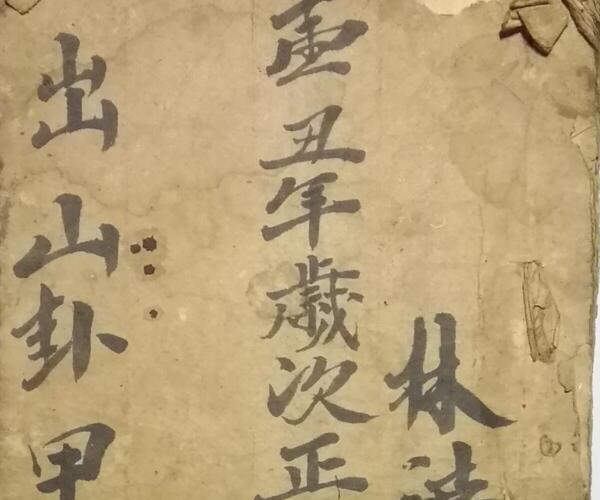 林
丑年歲次正
出山卦甲